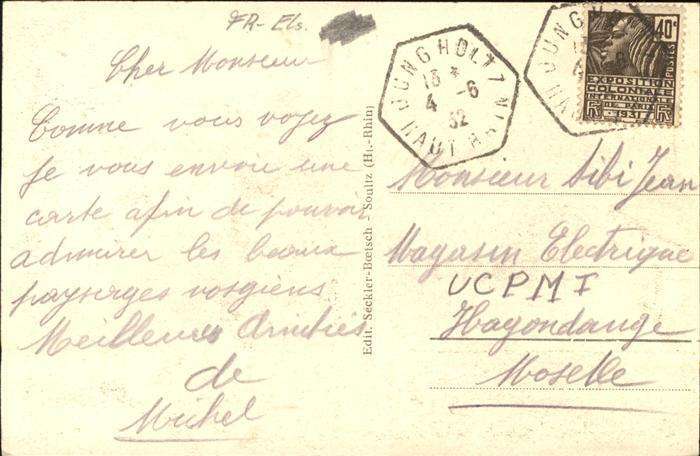 FR-Els.
Cher Monsieur
Comme vous voyez
je vous envoie une
carte afin de pouvoir
admirer les beaux
paysages vosgiens
Meilleures Amitiés
de
Michel
Edit. Seckler-Bœtsch - Soultz (Ht.-Rhin)
JUNGHOLTZ
13 *
4 -6
32
HAUT RHIN
JUNGH
HAU
40c
POSTES
EXPOSITION
COLONIALE
INTERNATIONALE
DE PARIS
1931
Monsieur Sibi Jean
Magasin Electrique
UCPMI
Hagondange
Moselle